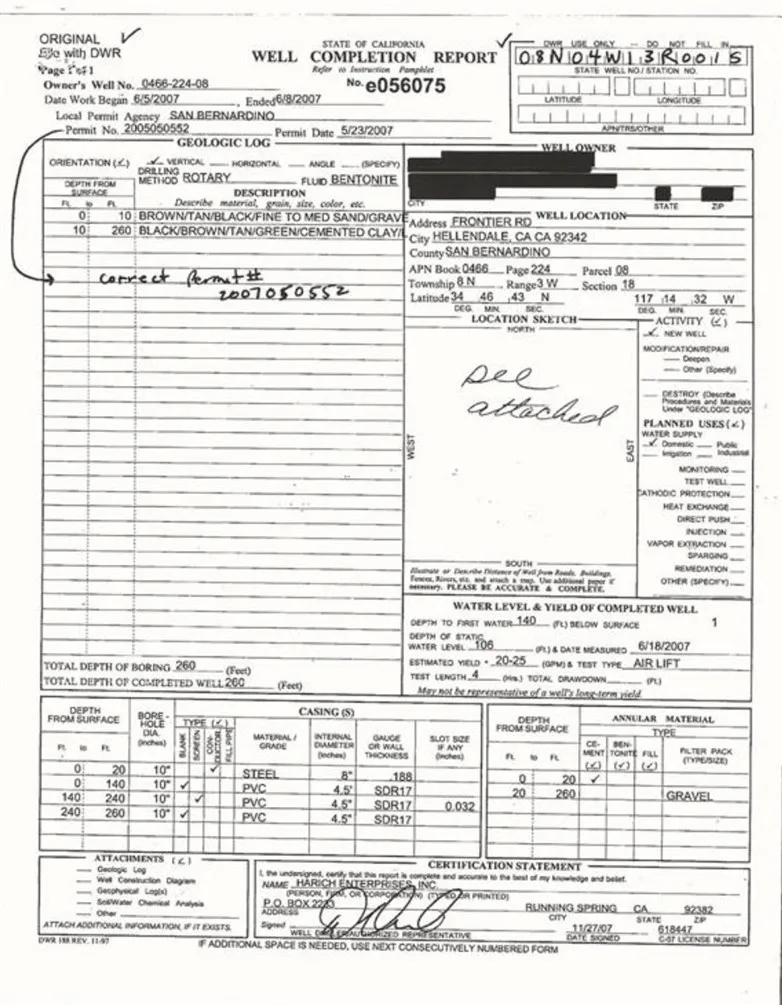 ORIGINAL
File with DWR
Page 1 of 1
Owner's Well No. 0466-224-08
Date Work Began 6/5/2007 , Ended 6/8/2007
Local Permit Agency SAN BERNARDINO
Permit No. 2005050552 Permit Date 5/23/2007
STATE OF CALIFORNIA
WELL COMPLETION REPORT
Refer to Instruction Pamphlet
No. e056075
DWR USE ONLY — DO NOT FILL IN
08N04W13R001S
STATE WELL NO./STATION NO.
LATITUDE LONGITUDE
APN/TRS/OTHER
GEOLOGIC LOG
ORIENTATION (✓) ✓ VERTICAL HORIZONTAL ANGLE (SPECIFY)
DRILLING METHOD ROTARY FLUID BENTONITE
DEPTH FROM SURFACE
Ft. to Ft.
DESCRIPTION
Describe material, grain, size, color, etc.
0 10 BROWN/TAN/BLACK/FINE TO MED SAND/GRAVE
10 260 BLACK/BROWN/TAN/GREEN/CEMENTED CLAY/
correct permit #
2007050552
TOTAL DEPTH OF BORING 260 (Feet)
TOTAL DEPTH OF COMPLETED WELL 260 (Feet)
WELL OWNER
CITY STATE ZIP
WELL LOCATION
Address FRONTIER RD
City HELLENDALE, CA CA 92342
County SAN BERNARDINO
APN Book 0466 Page 224 Parcel 08
Township 8 N Range 3 W Section 18
Latitude 34 46 43 N 117 14 32 W
DEG. MIN. SEC. DEG. MIN. SEC.
LOCATION SKETCH
NORTH
see
attached
WEST
EAST
SOUTH
Illustrate or Describe Distance of Well from Roads, Buildings,
Fences, Rivers, etc. and attach a map. Use additional paper if
necessary. PLEASE BE ACCURATE & COMPLETE.
ACTIVITY (✓)
✓ NEW WELL
MODIFICATION/REPAIR
Deepen
Other (Specify)
DESTROY (Describe
Procedures and Materials
Under "GEOLOGIC LOG"
PLANNED USES (✓)
WATER SUPPLY
✓ Domestic Public
Irrigation Industrial
MONITORING
TEST WELL
CATHODIC PROTECTION
HEAT EXCHANGE
DIRECT PUSH
INJECTION
VAPOR EXTRACTION
SPARGING
REMEDIATION
OTHER (SPECIFY)
WATER LEVEL & YIELD OF COMPLETED WELL
DEPTH TO FIRST WATER 140 (Ft.) BELOW SURFACE 1
DEPTH OF STATIC
WATER LEVEL 106 (Ft.) & DATE MEASURED 6/18/2007
ESTIMATED YIELD * 20-25 (GPM) & TEST TYPE AIR LIFT
TEST LENGTH 4 (Hrs.) TOTAL DRAWDOWN (Ft.)
May not be representative of a well's long-term yield.
DEPTH FROM SURFACE
Ft. to Ft.
BORE-HOLE DIA. (Inches)
CASING (S)
TYPE (✓)
BLANK SCREEN CON-DUCTOR FILL PIPE
MATERIAL / GRADE
INTERNAL DIAMETER (Inches)
GAUGE OR WALL THICKNESS
SLOT SIZE IF ANY (Inches)
0 20 10" ✓ STEEL 8" .188
0 140 10" ✓ PVC 4.5' SDR17
140 240 10" ✓ PVC 4.5" SDR17 0.032
240 260 10" ✓ PVC 4.5" SDR17
DEPTH FROM SURFACE
Ft. to Ft.
ANNULAR MATERIAL
TYPE
CE-MENT (✓) BEN-TONITE (✓) FILL (✓) FILTER PACK (TYPE/SIZE)
0 20 ✓
20 260 GRAVEL
ATTACHMENTS (✓)
Geologic Log
Well Construction Diagram
Geophysical Log(s)
Soil/Water Chemical Analysis
Other
ATTACH ADDITIONAL INFORMATION, IF IT EXISTS.
CERTIFICATION STATEMENT
I, the undersigned, certify that this report is complete and accurate to the best of my knowledge and belief.
NAME HARICH ENTERPRISES, INC.
(PERSON, FIRM, OR CORPORATION) (TYPED OR PRINTED)
P.O. BOX RUNNING SPRING CA 92382
ADDRESS CITY STATE ZIP
Signed 11/27/07 618447
WELL DRILLER/AUTHORIZED REPRESENTATIVE DATE SIGNED C-57 LICENSE NUMBER
DWR 188 REV. 11-97
IF ADDITIONAL SPACE IS NEEDED, USE NEXT CONSECUTIVELY NUMBERED FORM